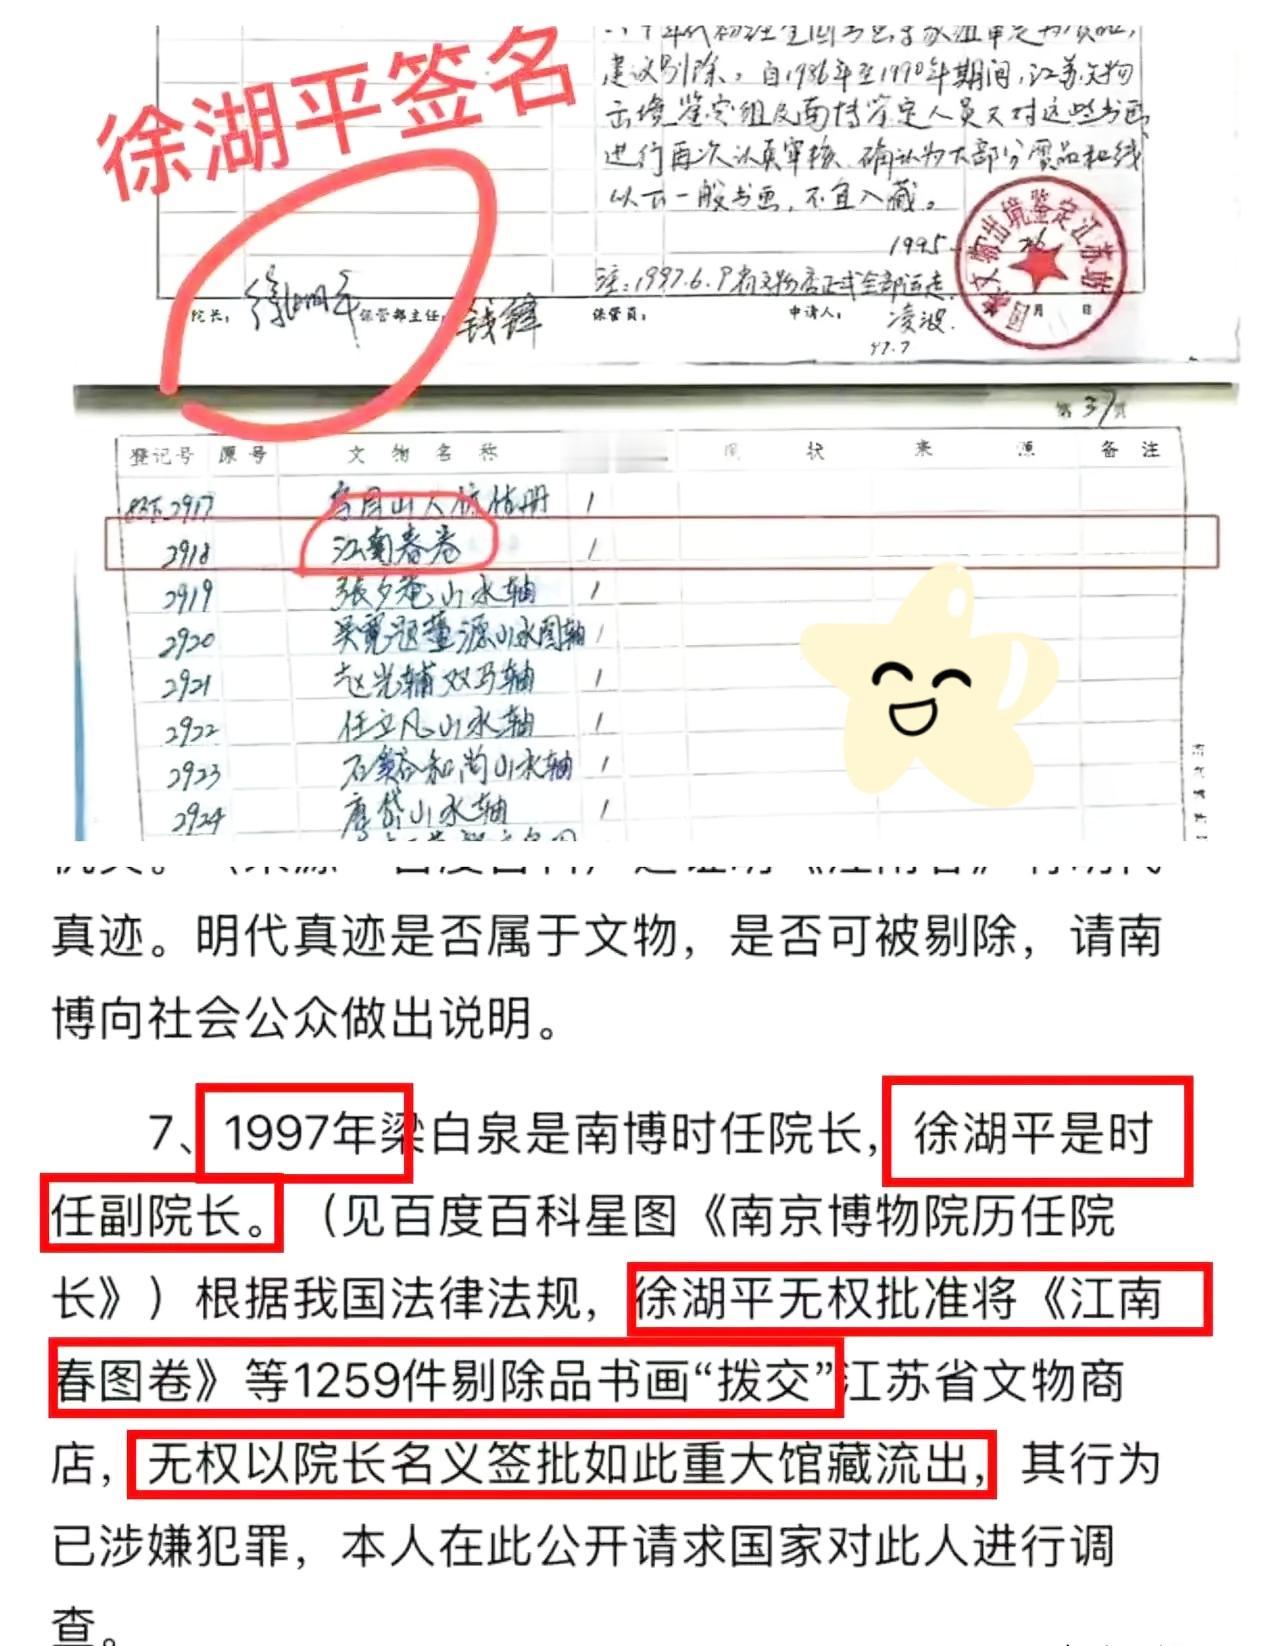 徐湖平签名
建议剔除。自1986年至1990年期间,江苏文物
出境鉴定组及南博鉴定人员又对这些书画
进行再次认真审核,确认为大部分赝品和线
以下一般书画,不宜入藏。
1995.
国家文物出境鉴定江苏站
月 日
注:1997.6.9省文物店正式全部运走.
院长: 徐湖平 保管部主任: 钱锋 保管员: 申请人: 凌波.
97.7
第37页
登记号 原号 文物名称 现状 来源 备注
2917 1
2918 江南春卷 1
2919 張夕菴山水轴 1
2920 吴寛题董源山水图轴 1
2921 赵光辅双马轴 1
2922 任立凡山水轴 1
2923 和尚山水轴 1
2924 唐岱山水轴 1
真迹。明代真迹是否属于文物，是否可被剔除，请南
博向社会公众做出说明。
7、1997年梁白泉是南博时任院长，徐湖平是时
任副院长。（见百度百科星图《南京博物院历任院
长》）根据我国法律法规，徐湖平无权批准将《江南
春图卷》等1259件剔除品书画“拨交”江苏省文物商
店，无权以院长名义签批如此重大馆藏流出，其行为
已涉嫌犯罪，本人在此公开请求国家对此人进行调
查。